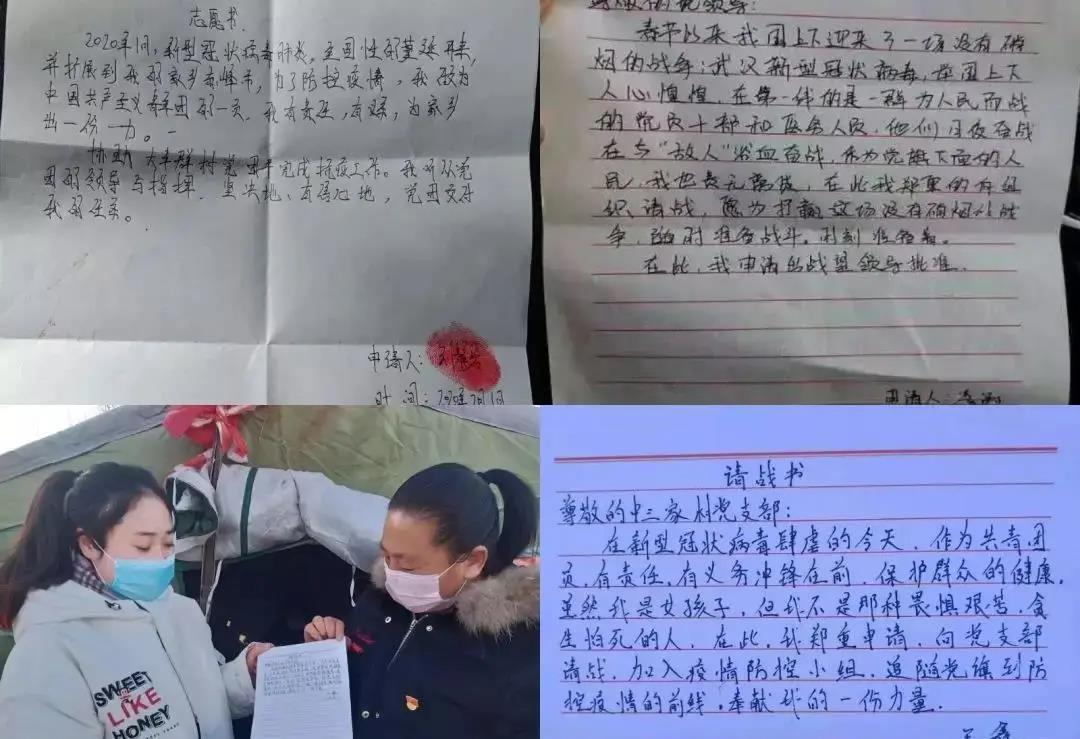 志愿书
2020年1月，新型冠状病毒肺炎，全国性的蔓延开来，
并扩展到我的家乡赤峰市，为了防控疫情，我做为
中国共产主义青年团的一员，我有责任，有义务，为家乡
出一份力。
协助 大车群村党团干完成抗疫工作。我听从党
团的领导与指挥，坚决地、有信心地，党团交付
我的任务。
申请人：
时间：
尊敬的党领导：
春节以来我国上下迎来了一场没有硝
烟的战争：武汉新型冠状病毒，举国上下
人心惶惶，在第一线的是一群为人民而战
的党员干部和医务人员，他们日夜奋战
在与“敌人”浴血奋战，作为党旗下面的人
民，我也责无旁贷，在此我郑重的向组
织、请战，愿为打赢这场没有硝烟的战
争，随时准备战斗。时刻准备着。
在此，我申请出战望领导批准。
申请人：
SWEET
LIKE
HONEY
请战书
尊敬的中三家村党支部：
在新型冠状病毒肆虐的今天，作为共青团
员，有责任，有义务冲锋在前，保护群众的健康，
虽然我是女孩子，但我不是那种畏惧艰苦，贪
生怕死的人，在此，我郑重申请，向党支部
请战，加入疫情防控小组，追随党旗到防
控疫情的前线，奉献我的一份力量.